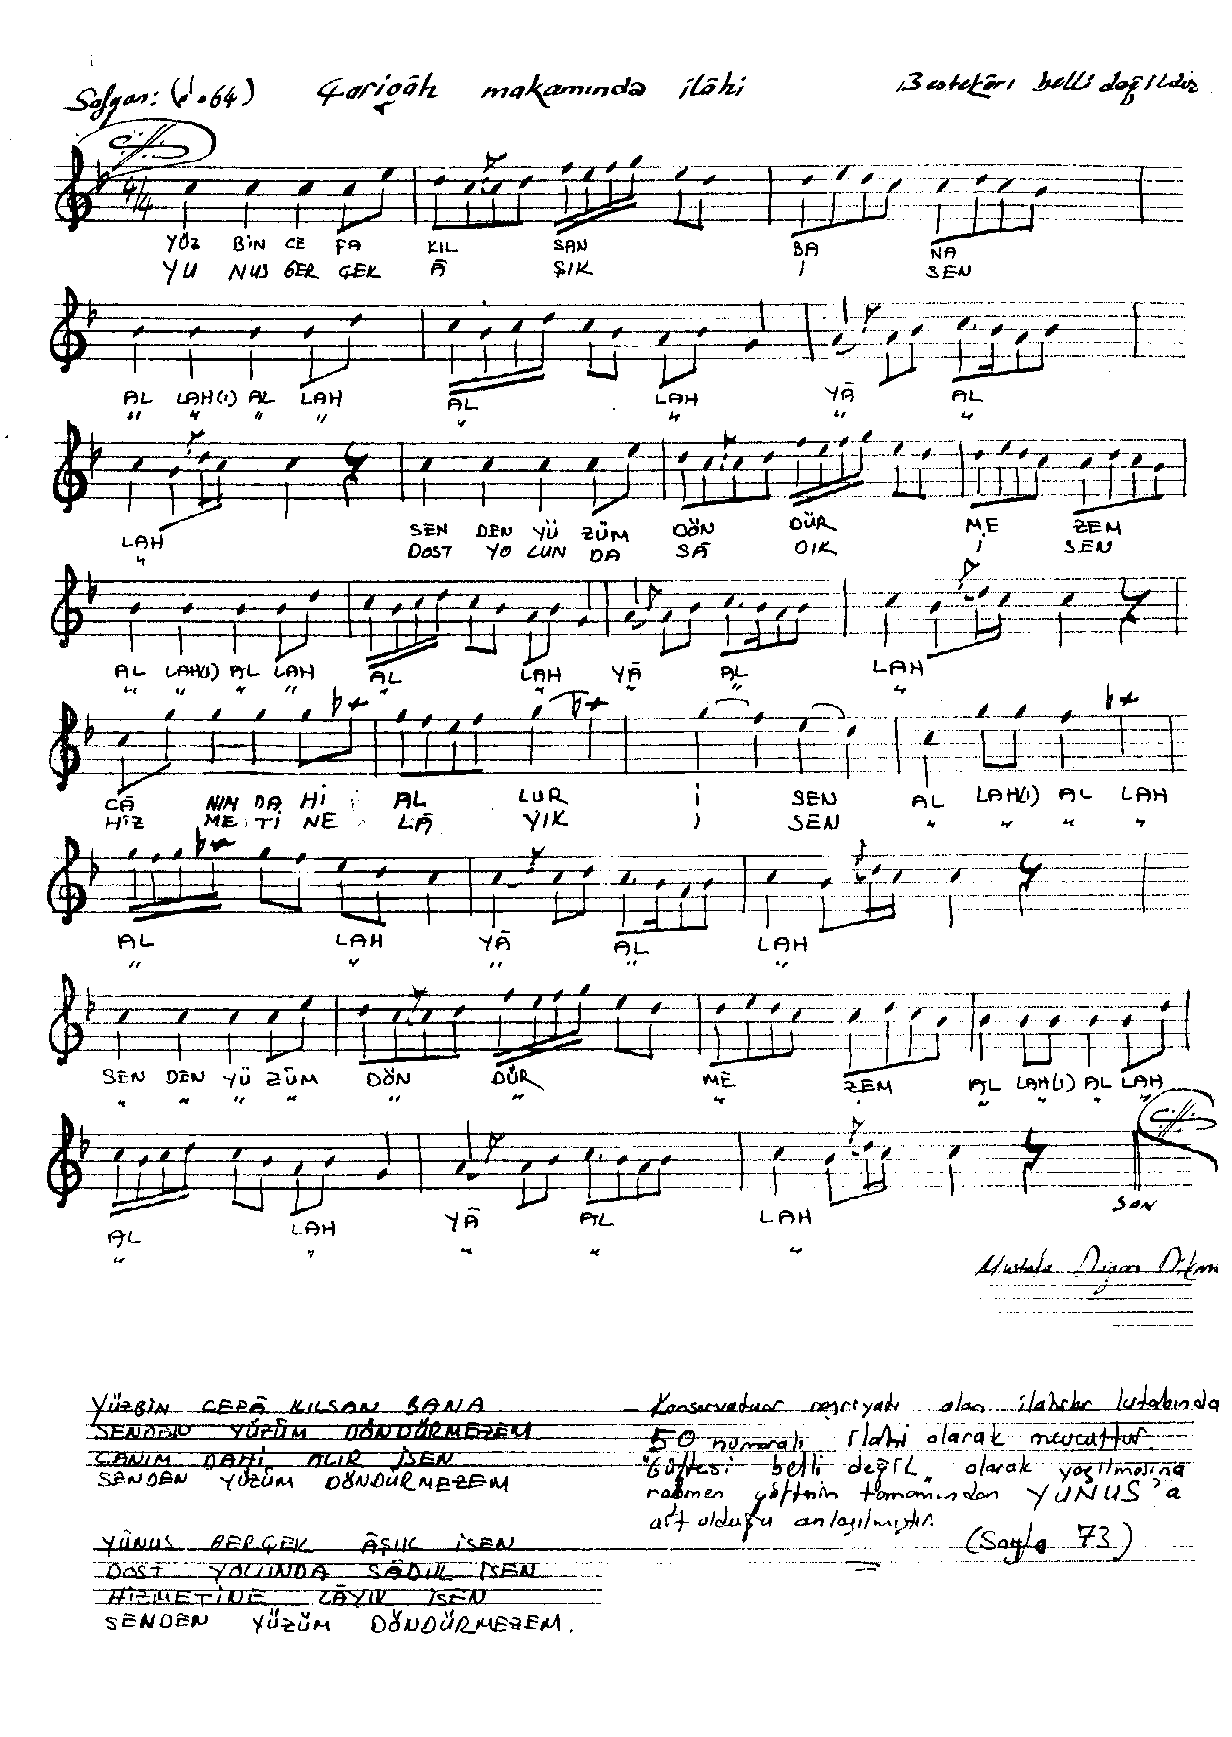 Sofyan: (♩=64) Çargâh makamında ilâhi Bestekârı belli değildir
4/4
YÜZ BİN CE FA KIL SAN BA NA
YU NUS GER ÇEK Â ŞIK İ SEN
AL LAH(I) AL LAH AL LAH YÂ AL
" " " " " " " "
LAH SEN DEN YÜ ZÜM DÖN DÜR ME ZEM
" DOST YO LUN DA SÂ DIK İ SEN
AL LAH(I) AL LAH AL LAH YÂ AL LAH
" " " " " " " " "
CÂ NIN DA Hİ AL LUR İ SEN AL LAH(I) AL LAH
HİZ ME Tİ NE LÂ YIK İ SEN " " " "
AL LAH YÂ AL LAH
" " " " "
SEN DEN YÜ ZÜM DÖN DÜR ME ZEM AL LAH(I) AL LAH
" " " " " " " " " " " "
AL LAH YÂ AL LAH SON
" " " " "
Mustafa
YÜZBİN CEFÂ KILSAN BANA
SENDEN YÜZÜM DÖNDÜRMEZEM
CANIM DAHİ ALIR İSEN
SENDEN YÜZÜM DÖNDÜRMEZEM
YÛNUS GERÇEK ÂŞIK İSEN
DOST YOLUNDA SÂDIK İSEN
HİZMETİNE LÂYIK İSEN
SENDEN YÜZÜM DÖNDÜRMEZEM.
- Konservatuar neşriyatı olan ilahiler kitabında
50 numaralı ilahi olarak mevcuttur.
"Güftesi belli değil" olarak yazılmasına
rağmen güftenin tamamından YUNUS'a
ait olduğu anlaşılmıştır.
(Sayfa 73)